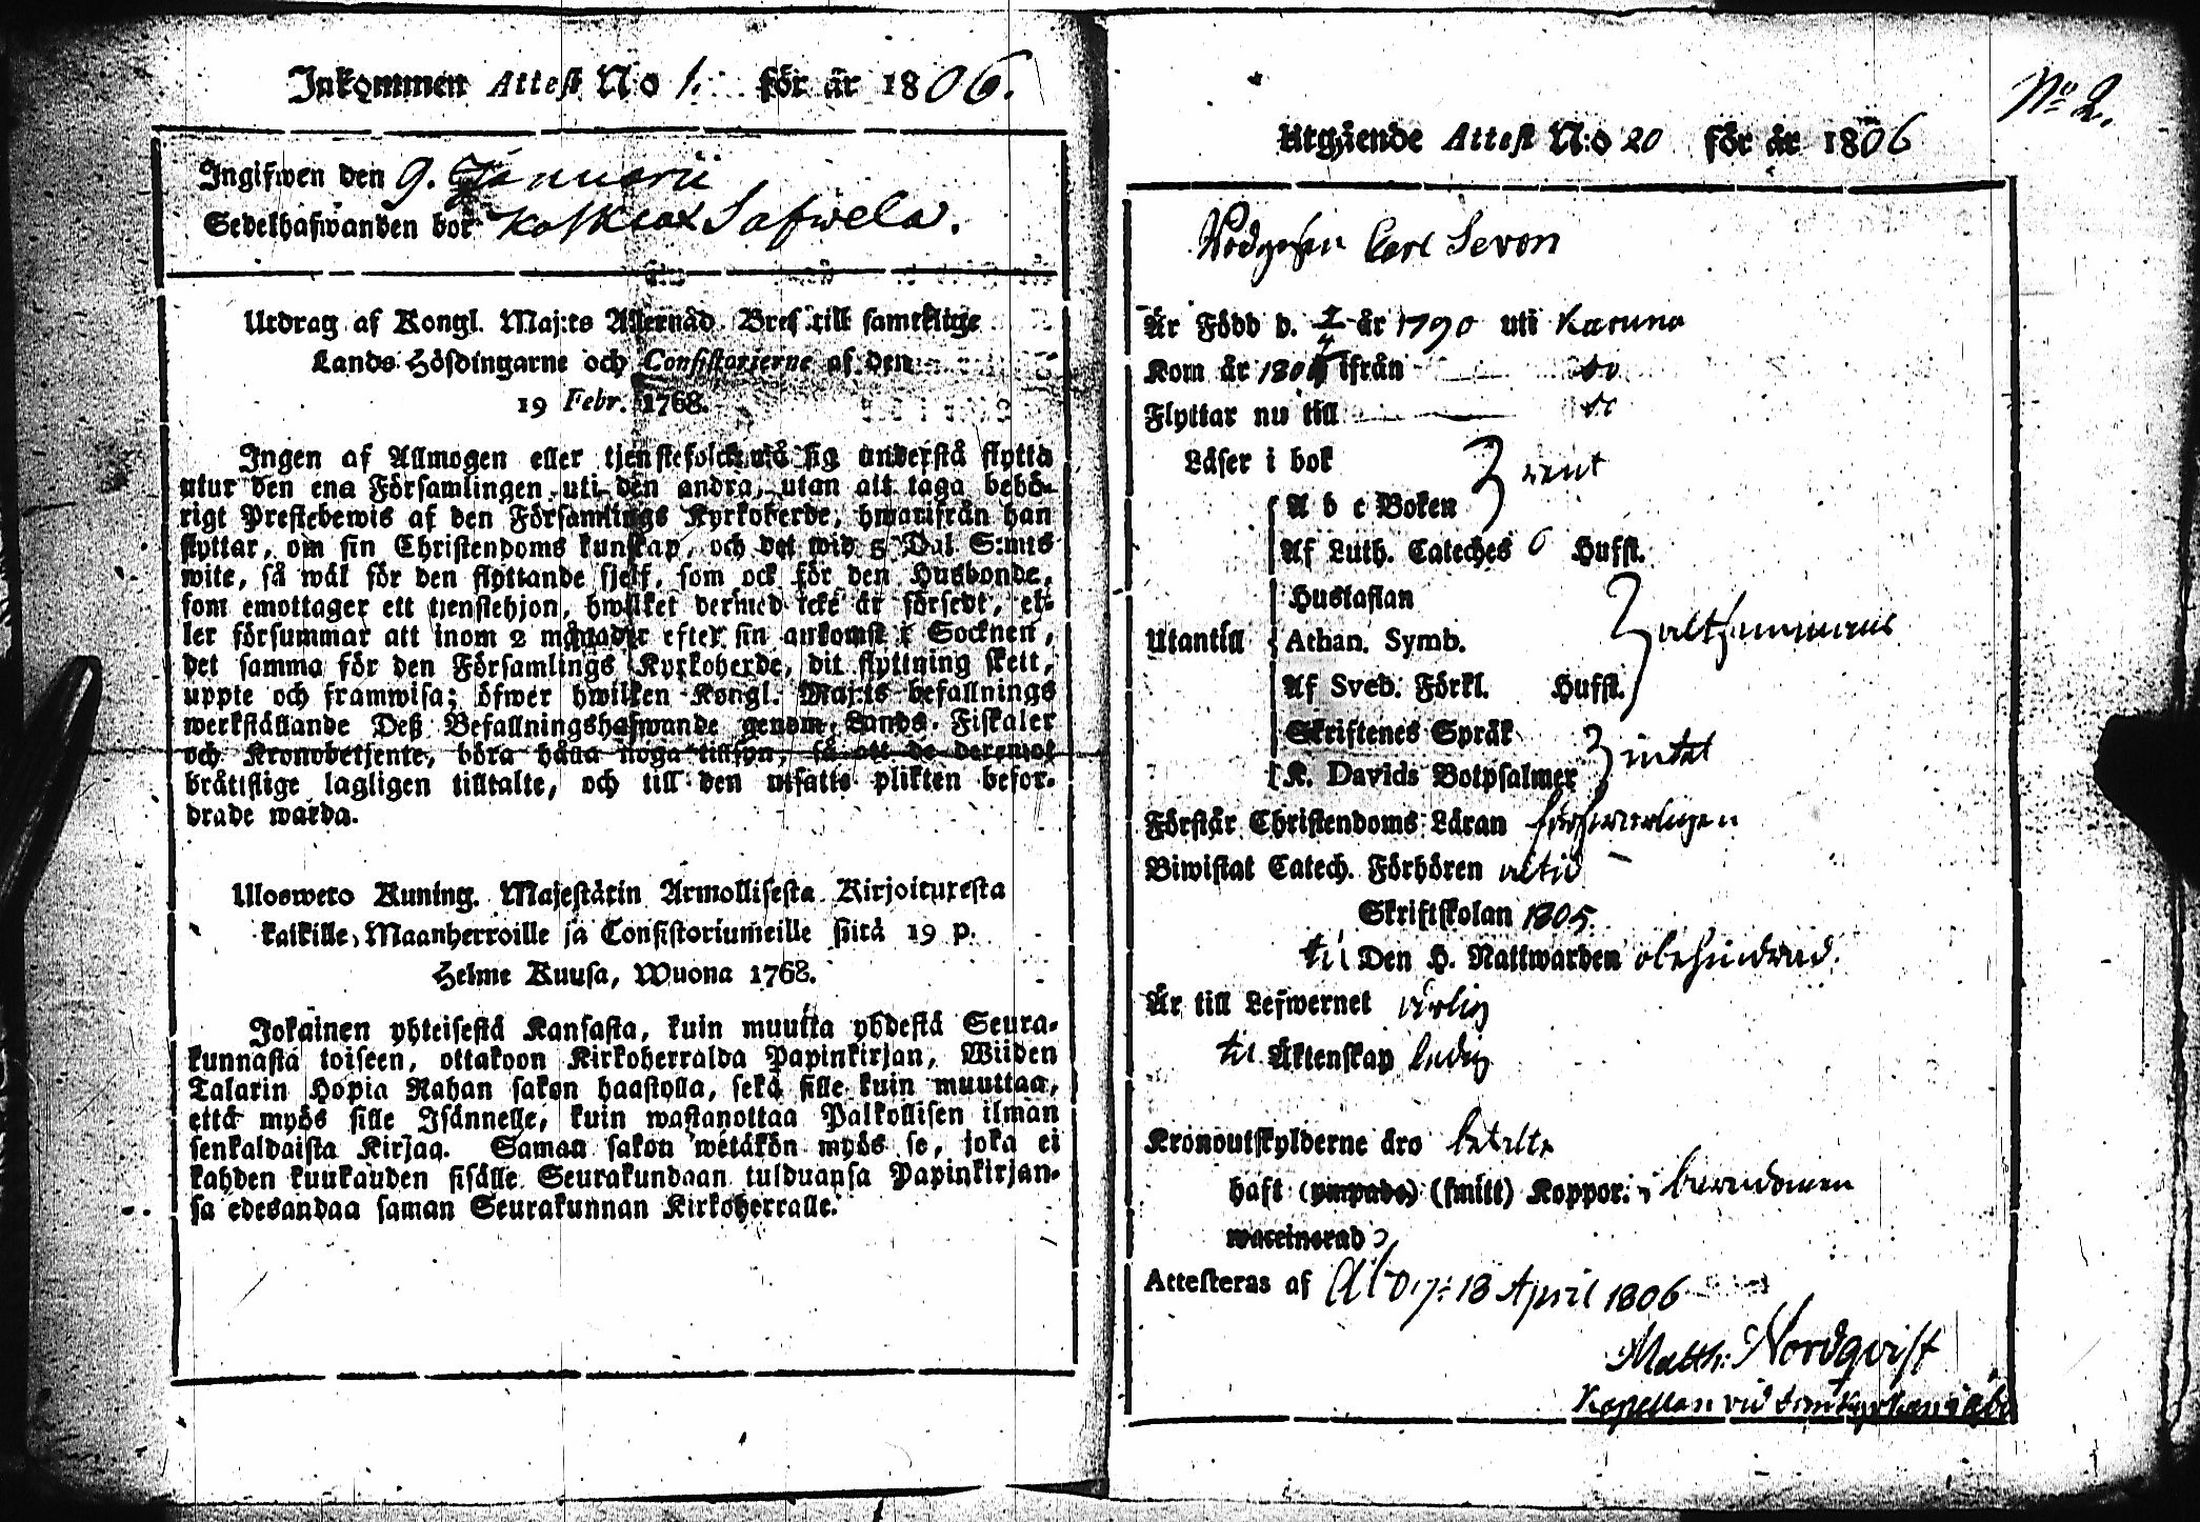 Inkommen Attest No 1. för år 1806.
Ingifwen den 9. Januarii
Sedelhafwanden bor Safwela.
Utdrag af Kongl. Maj:ts Allernåd. Bref till samtklige
Lands Höfdingarne och Consistorierne af den
19 Febr. 1768.
Ingen af Allmogen eller tjenstefolck må sig understå flytta
utur den ena Församlingen uti den andra, utan att taga behö-
rigt Prestebewis af den Församlings Kyrkoherde, hwarifrån han
flyttar, om sin Christendoms kunskap, och det wid 5 Dal. S:mts
wite, så wäl för den flyttande sjelf, som ock för den Husbonde,
som emottager ett tjenstehjon, hwilket dermed icke är försedt, el-
ler försummar att inom 2 månader efter sin ankomst i Socknen,
det samma för den Församlings Kyrkoherde, dit flyttning skett,
uppte och framwisa; öfwer hwilken Kongl. Maj:ts befallnings
werkställande Deß Befallningshafwande genom Lands-Fiskaler
och Kronobetjente, böra hålla noga tillsyn, så att de deremot
bråttslige lagligen tilltalte, och till den utsatte plikten befor-
drade warda.
Ulosweto Kuning. Majestätin Armollisesta Kirjoituxesta
kaikille Maanherroille ja Consistoriumeille siitä 19 p.
Helme Kuusa, Wuona 1768.
Jokainen yhteisestä Kansasta, kuin muutta yhdestä Seura-
kunnasta toiseen, ottakoon Kirkoherralda Papinkirjan, Wiiden
Talarin Hopia Rahan sakon haastolla, sekä sille kuin muuttaa,
että myös sille Isännelle, kuin wastanottaa Palkollisen ilman
senkaldaista Kirjaa. Saman sakon wetäkön myös se, joka ei
kahden kuukauden sisälle Seurakundaan tulduansa Papinkirjan-
sa edesandaa saman Seurakunnan Kirkoherralle.
No 2.
Utgående Attest N:o 20 för år 1806
Carl Sevon
Är Född d. år 1790 uti Karuna
Kom år ifrån do
Flyttar nu till do
Läser i bok rent
A b c Boken
Af Luth. Cateches 6 Hufst.
Hustaflan
Utantill Athan. Symb.
Af Sveb. Förkl. Hufst.
Skriftenes Språk
K. Davids Botpsalmer intet
Förstår Christendoms Läran försvarligen
Biwistat Catech. Förhören altid
Skriftskolan 1805.
til Den H. Nattwarden obehindrad.
Är till Lefwernet ärlig
til Äktenskap ledig
Kronoutskylderne äro betalte
haft (ympade) (smitt) Koppor i barndomen
waccinerad
Attesteras af Åbo 18 April 1806
Matth: Nordqvist
Kapellan vid Domkyrkan i Åbo